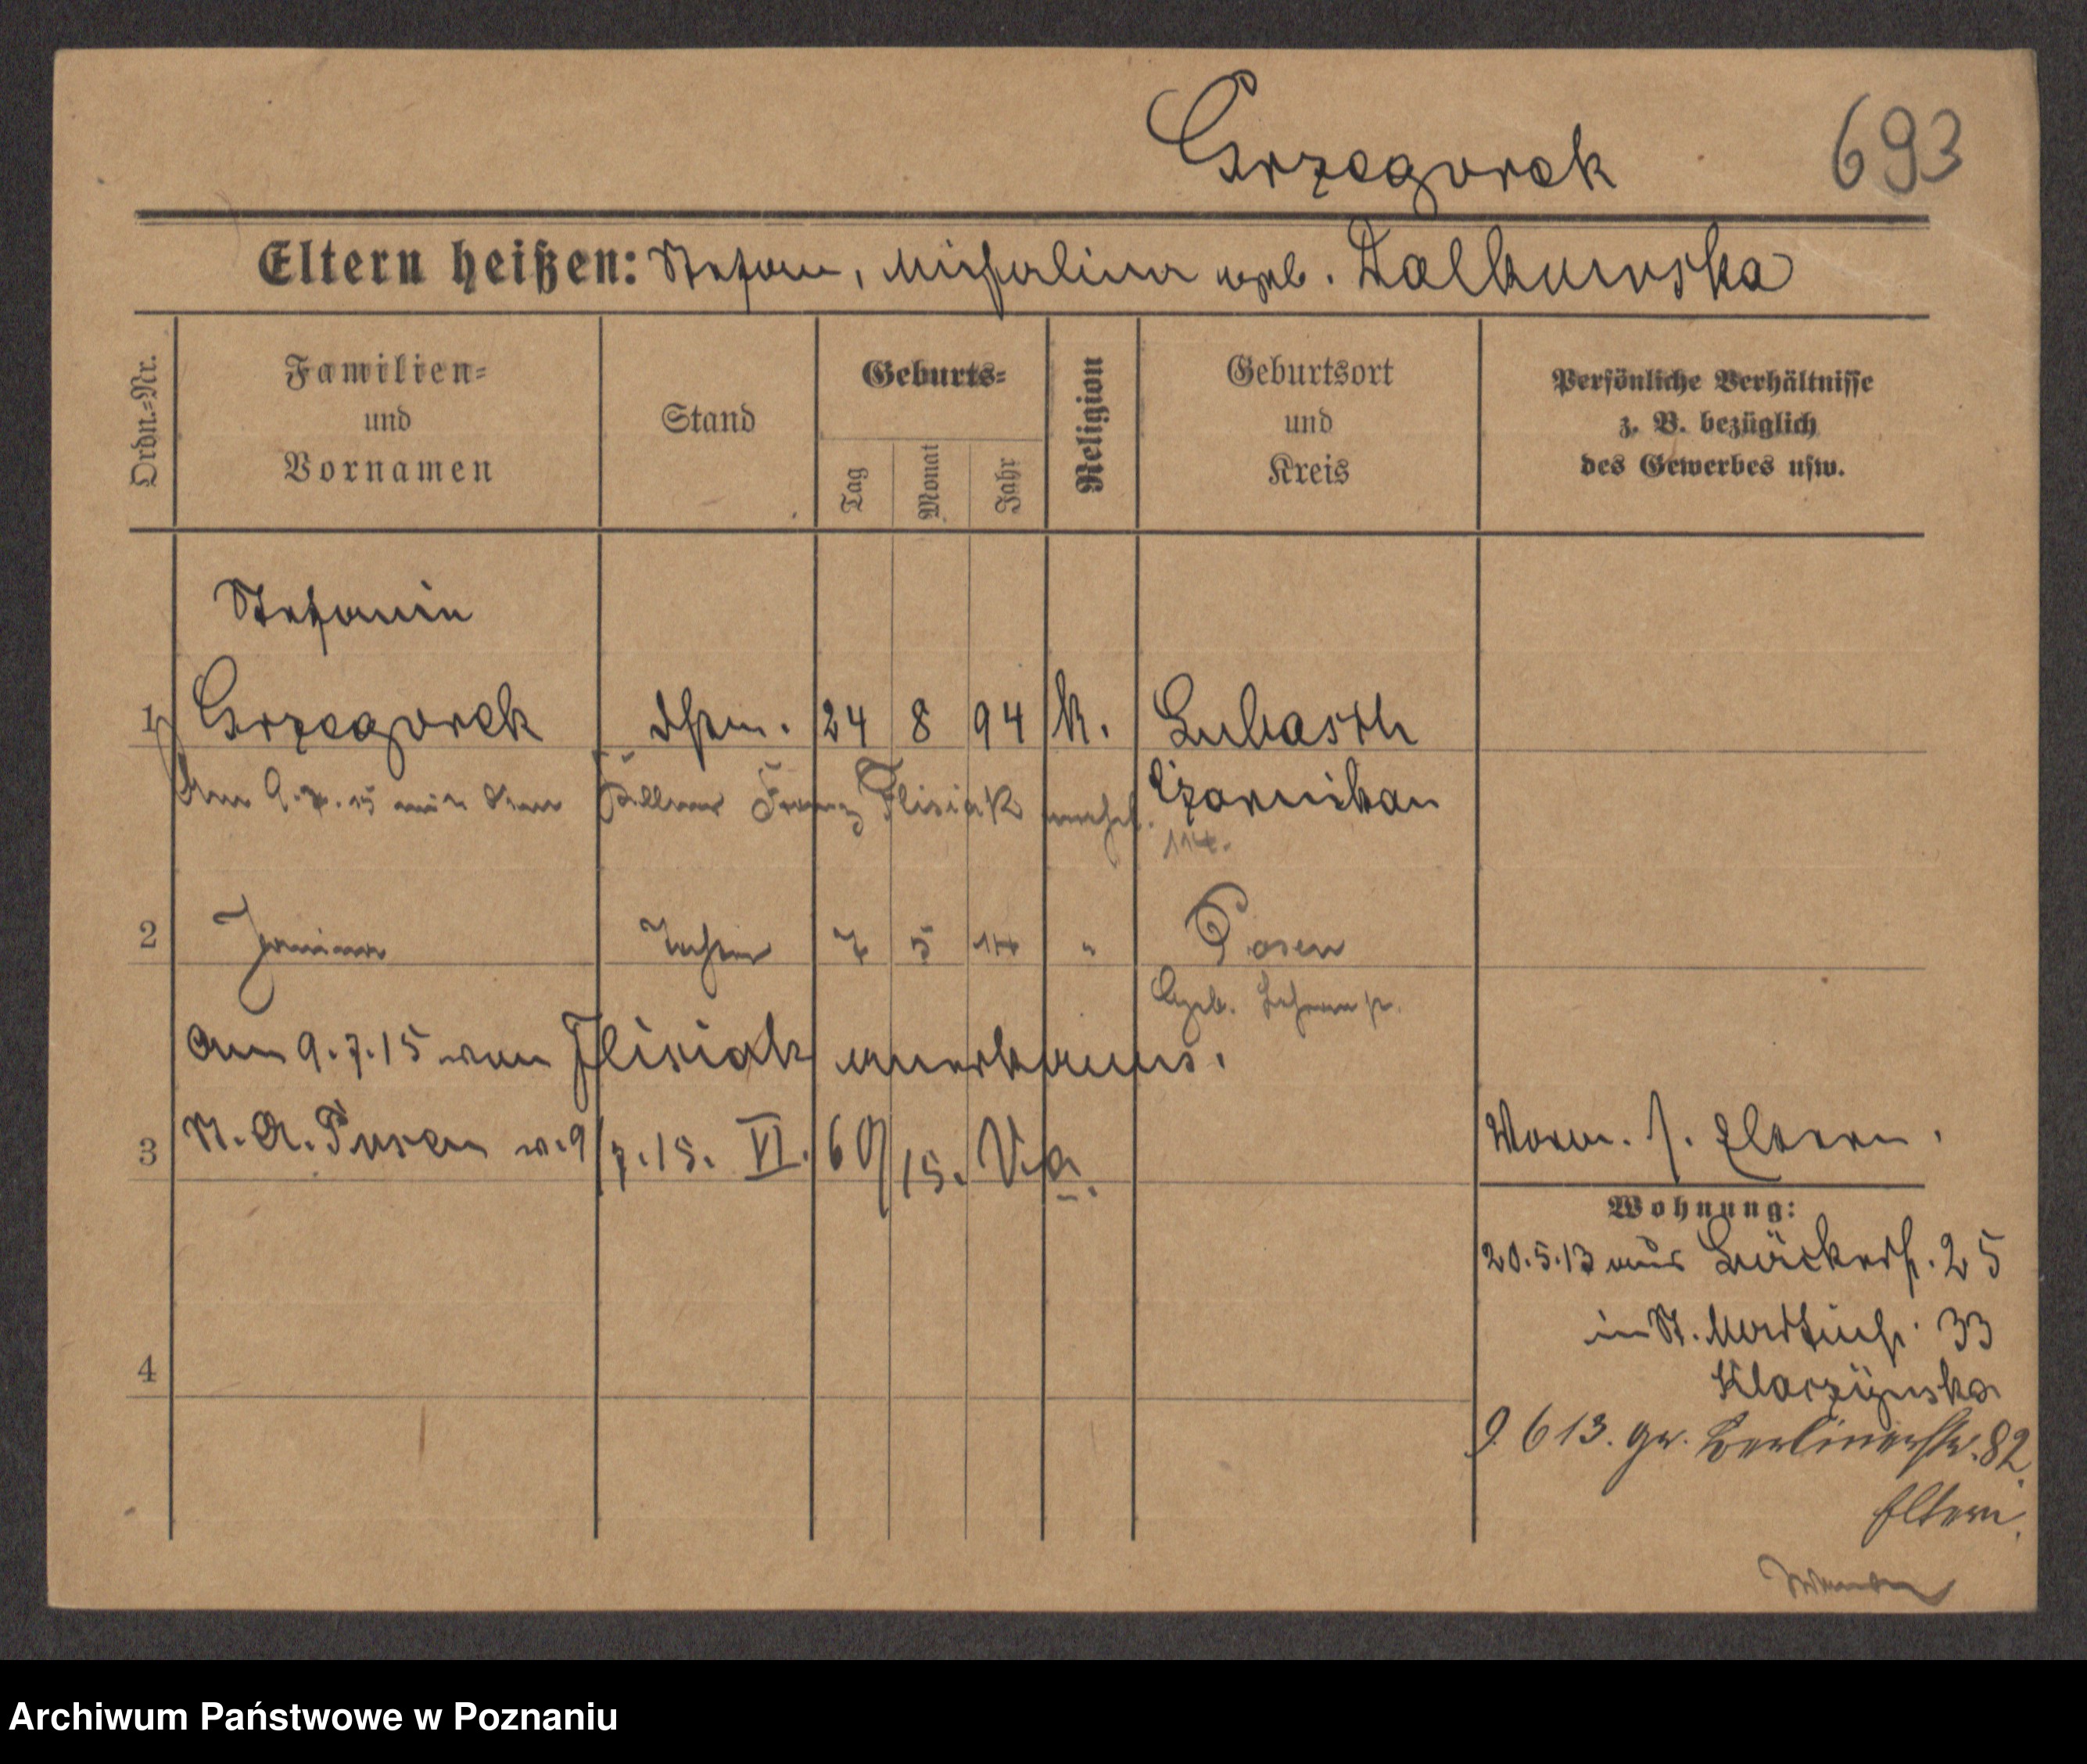 Grzegorek
693
Eltern heißen: Stefan, Michalina geb. Dalkowska
Ordn.-Nr.
Familien-
und
Vornamen
Stand
Geburts-
Tag
Monat
Jahr
Religion
Geburtsort
und
Kreis
Persönliche Verhältnisse
z. B. bezüglich
des Gewerbes usw.
Stefania
1 Grzegorek 24 8 94 k. Lubasch
Am 9.7.15 mit dem Kellner Franz Flisiak verh. Czarnikau
2 Janina Tochter 7 5 14 " Posen
Geb.
Am 9.7.15 von Flisiak anerkannt.
3 St. A. Posen v. 9/7.15. VI. 69/15. V.a.
Vorm. s. Eltern.
Wohnung:
20.5.13 aus Bäckerst. 25
in St. Martinst. 33
9.6 13. gr. Berlinerstr. 82.
Eltern.
4
Archiwum Państwowe w Poznaniu